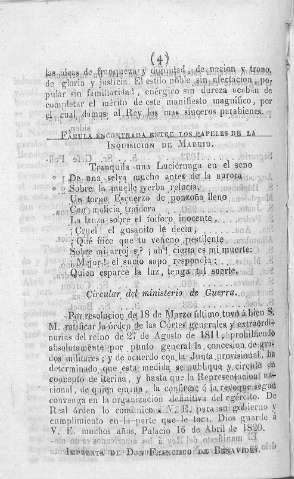 (4)
las ideas de franqueza y dignidad, de nacion y trono,
de gloria y justicia. El estilo noble sin afectacion, po-
pular sin familiaridad, energico sin dureza acaban de
completar el mérito de este manifiesto magnífico, por
el cual damos al Rey los mas sinceros parabienes.
FÁBULA ENCONTRADA ENTRE LOS PAPELES DE LA
INQUISICION DE MADRID.
Tranquila una Luciérnaga en el seno
De una selva mucho antes de la aurora
Sobre la muelle yerba relucia;
Un torpe Escuerzo de ponzoña lleno
Con malicia traidora
La lanza sobre el fósforo inocente,
¡Cruel! el gusanito le decia,
¿Qué hice que tu veneno pestilente
Sobre mí arrojes? ¡ah! cierta es mi muerte:
Mejor el suyo sapo responda:
Quien esparce la luz, tenga tal suerte.
Circular del ministerio de Guerra.
Por resolucion de 18 de Marzo último tuvo á bien S.
M. ratificar la órden de las Córtes generales y extraordi-
narias del reino de 27 de Agosto de 1811, prohibiendo
absolutamente por punto general la concesion de gra-
dos militares; y de acuerdo con la Junta provisional, ha
determinado que esta medida se publique y circule en
concepto de iterina, y hasta que la Representacion na-
cional, de quien emana, la confirme ó la revoque segun
convenga en la organizacion definitiva del egército. De
Real órden lo comunico á V. E. para su gobierno y
cumplimiento en la parte que le toca. Dios guarde á
V. E. muchos años. Palacio 16 de Abril de 1820.
IMPRENTA DE DON FRANCISCO DE BENAVIDES.